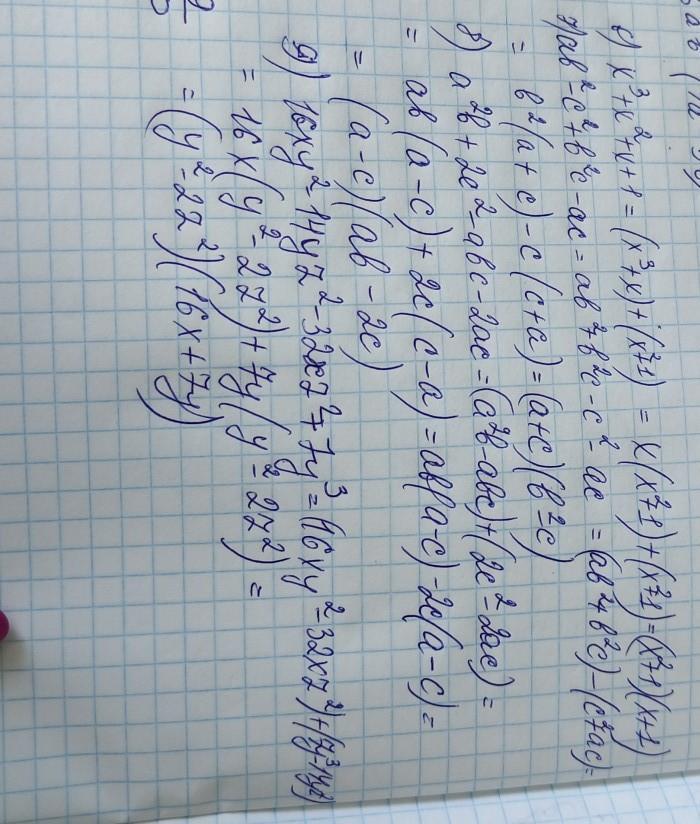 6) x³+x²+x+1 = (x³+x)+(x²+1) = x(x²+1)+(x²+1)=(x²+1)(x+1)
7) ab²-c²+b²c-ac = ab²+b²c-c²-ac = (ab²+b²c)-(c²+ac)=
= b²(a+c)-c(c+a)=(a+c)(b²-c)
8) a²b+2c²-abc-2ac=(a²b-abc)+(2c²-2ac)=
= ab(a-c)+2c(c-a)=ab(a-c)-2c(a-c)=
= (a-c)(ab-2c)
9) 16xy²-14yz²-32xz²+7y³=(16xy²-32xz²)+(7y³-14yz²)
= 16x(y²-2z²)+7y(y²-2z²)=
= (y²-2z²)(16x+7y)